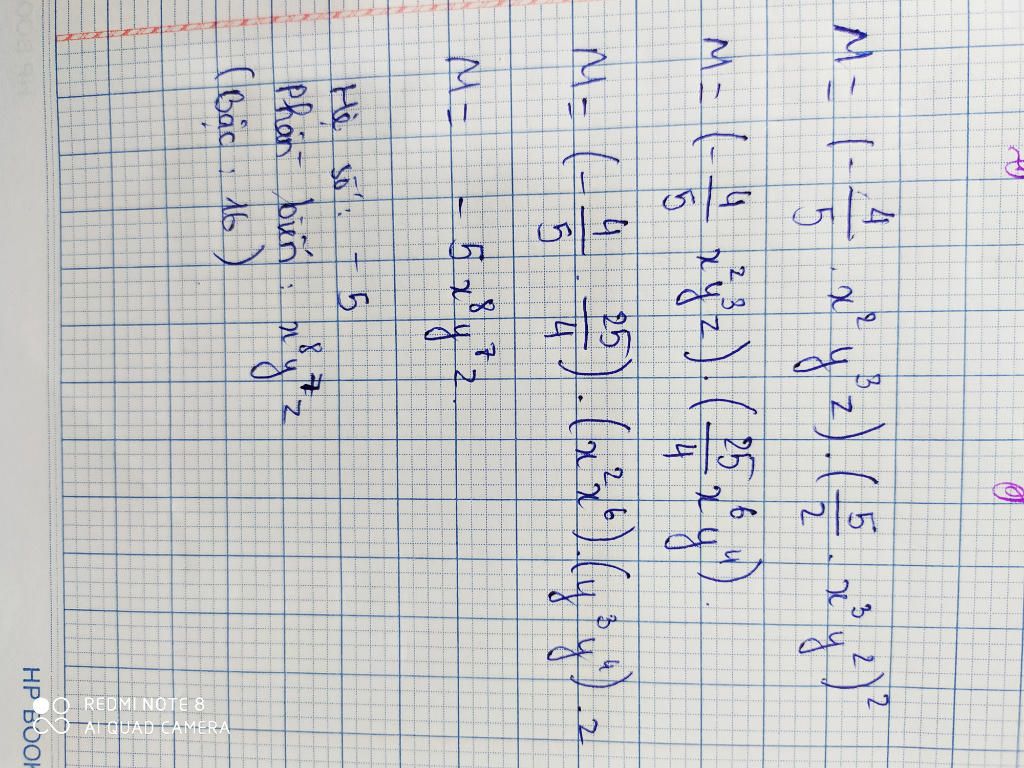 M = (-4/5 . x²y³z) . (5/2 . x³y²)²
M = (-4/5 x²y³z) . (25/4 x⁶y⁴)
M = (-4/5 . 25/4) . (x²x⁶) . (y³y⁴) . z
M = - 5x⁸y⁷z
Hệ số : - 5
Phần biến : x⁸y⁷z
(Bậc : 16)
HP BOOK
REDMI NOTE 8
AI QUAD CAMERA